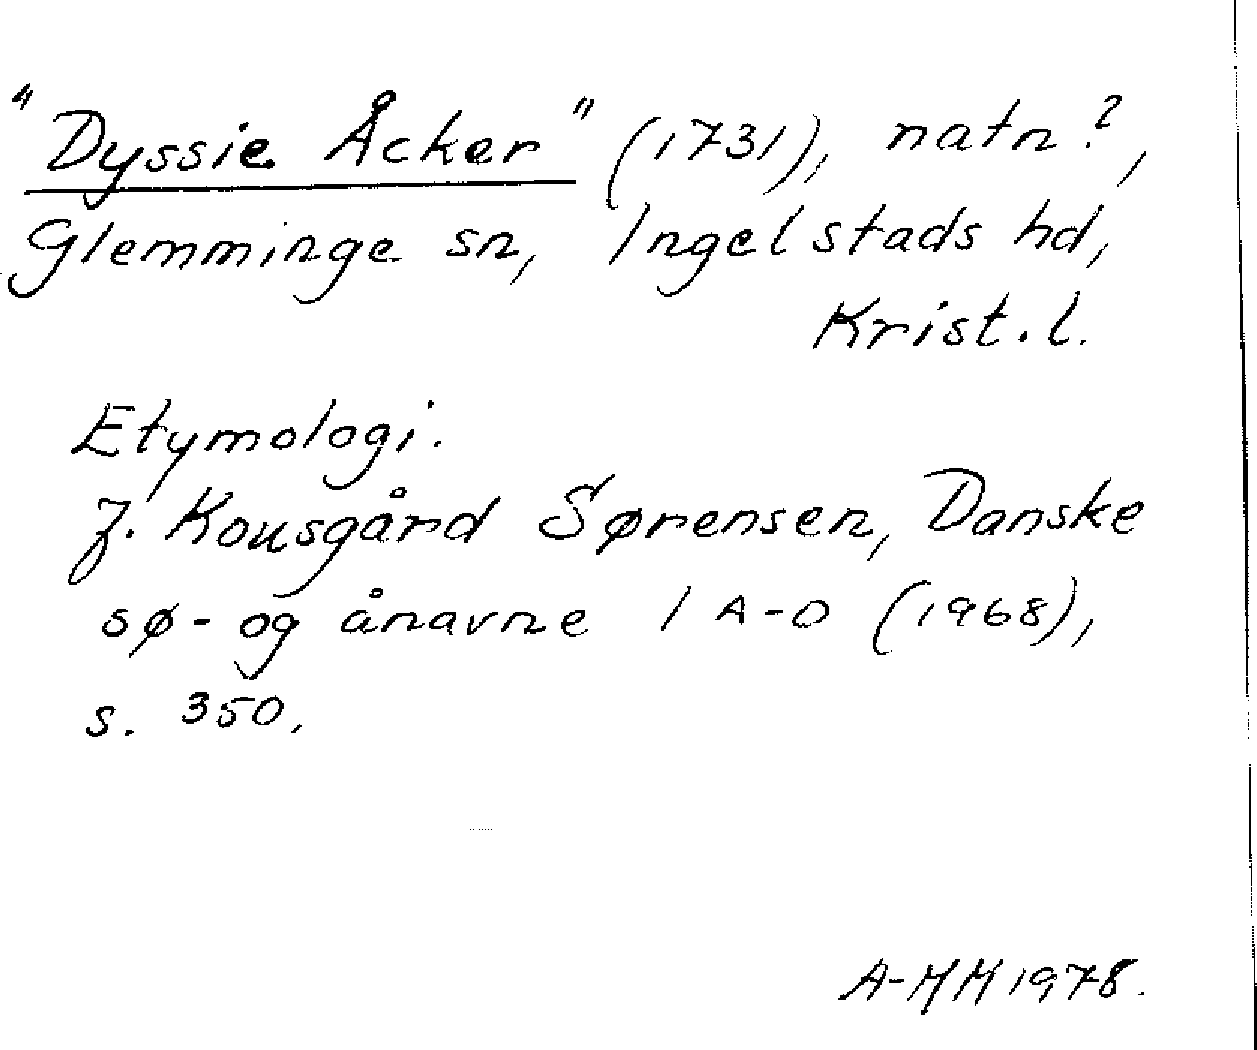 "Dyssie Åcker" (1731), natn?,
Glemminge sn, Ingelstads hd,
Krist. l.
Etymologi.
J. Kousgård Sørensen, Danske
sø- og ånavne 1 A-D (1968),
s. 350.
A-MM 1978.